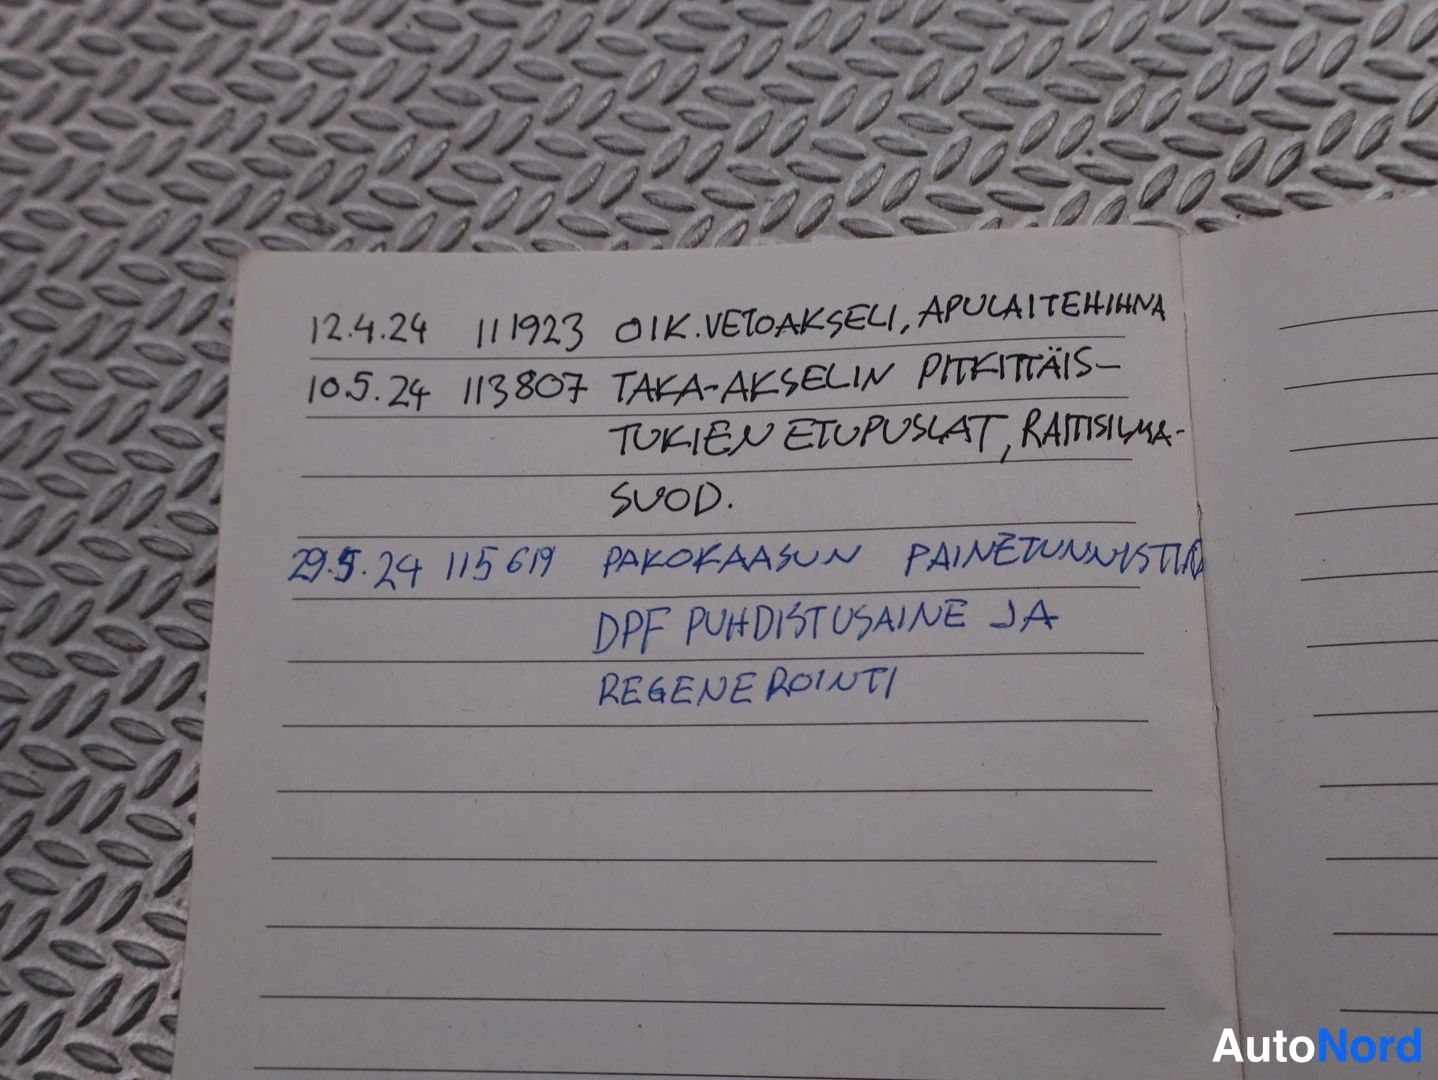 12.4.24 111923 OIK.VETOAKSELI, APULAITEHIHNA
10.5.24 113807 TAKA-AKSELIN PITKITTÄIS-
TUKIEN ETUPUSLAT, RAITISILMA-
SUOD.
29.5.24 115619 PAKOKAASUN PAINETUNNISTIN
DPF PUHDISTUSAINE JA
REGENEROINTI
AutoNord